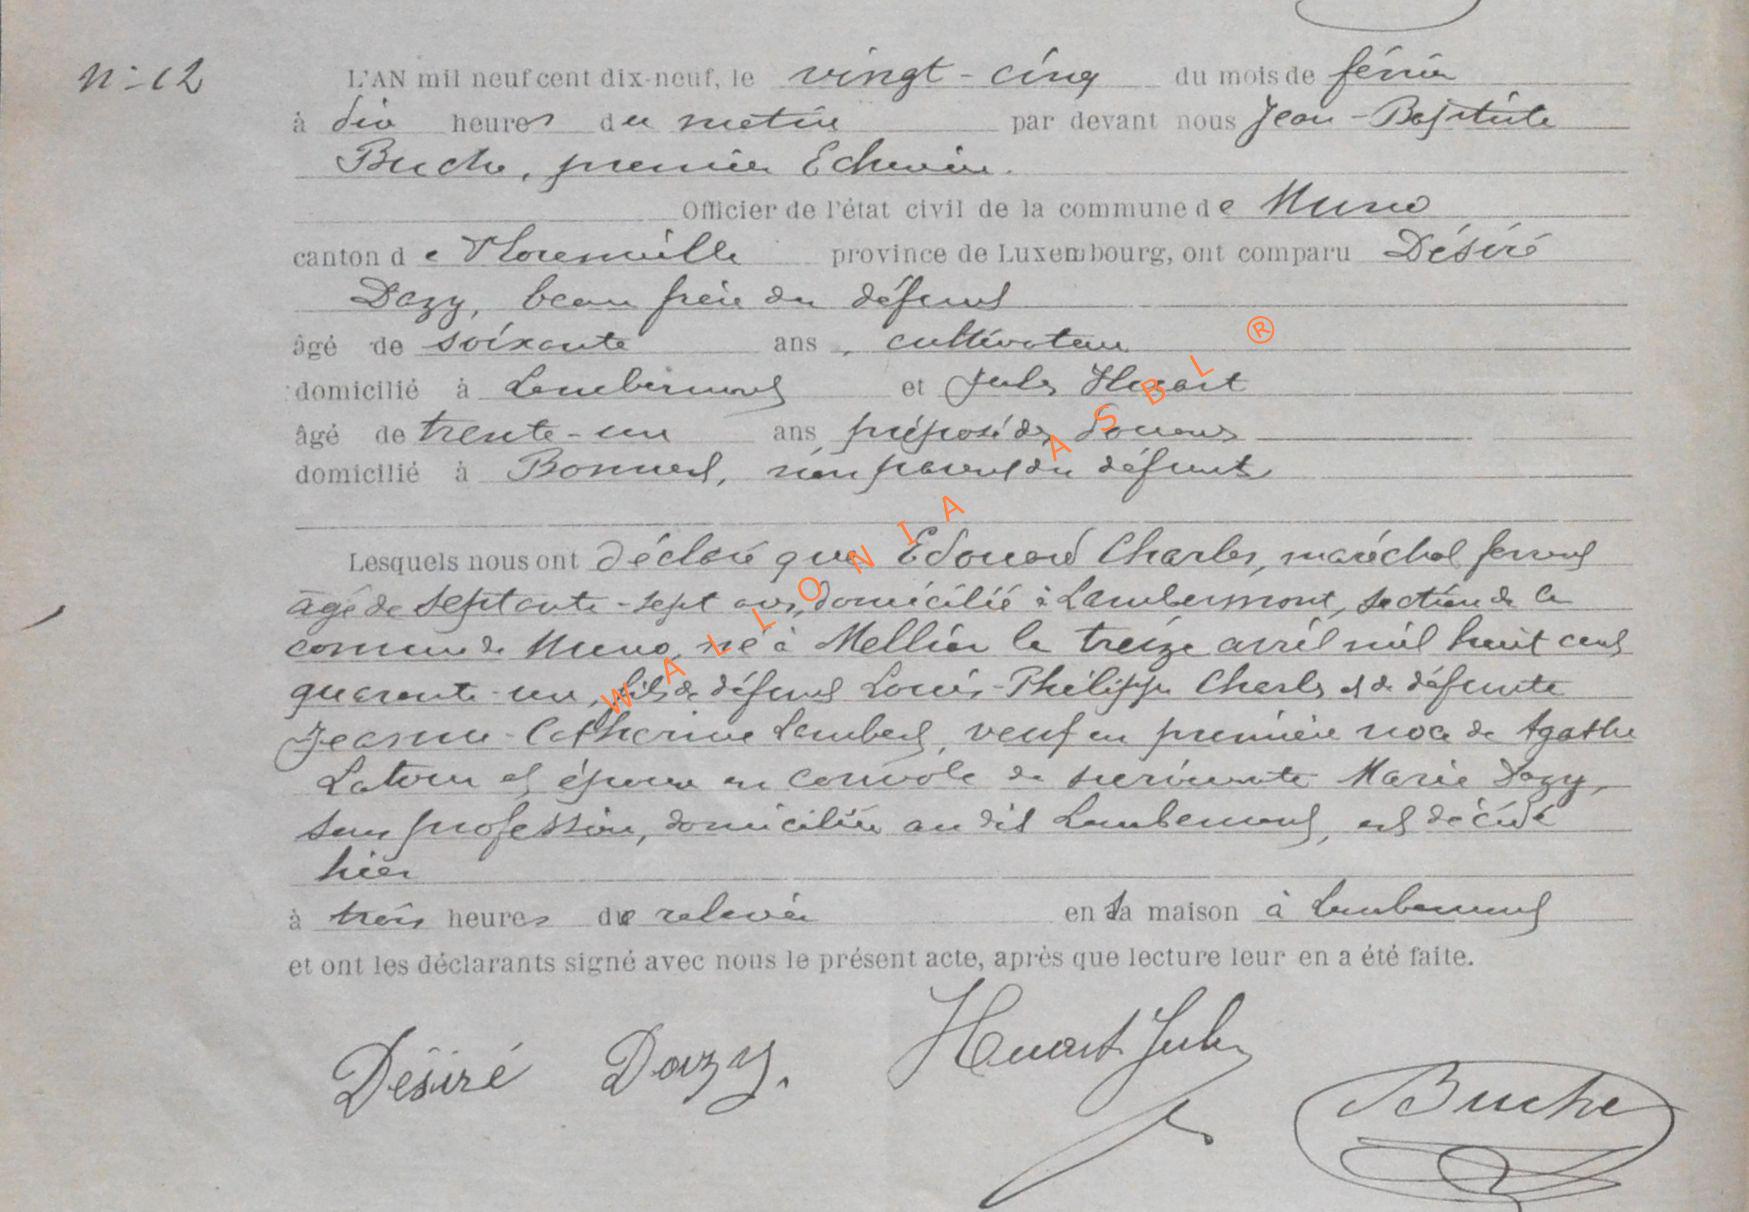 N° 12
L'AN mil neuf cent dix-neuf, le vingt-cinq du mois de février
à dix heures du matin par devant nous Jean-Baptiste
Buche, premier Echevin.
Officier de l'état civil de la commune de Muno
canton de Florenville province de Luxembourg, ont comparu Désiré
Dazy, beau frère du défunt
âgé de soixante ans, cultivateur
domicilié à Lambermont et Jules Huart
âgé de trente-un ans préposé des douanes
domicilié à Bonnert, non parent du défunt
Lesquels nous ont déclaré que Edouard Charles, maréchal ferrant
âgé de septante-sept ans, domicilié à Lambermont, section de la
commune de Muno, né à Mellier le treize avril mil huit cent
quarante-un, fils de défunt Louis-Philippe Charles et de défunte
Jeanne-Catherine Lambert, veuf en première noce de Agathe
Latour et époux en convole de survivante Marie Dazy,
sans profession, domiciliée au dit Lambermont, est décédé
hier
à trois heures de relevée en sa maison à Lambermont
et ont les déclarants signé avec nous le présent acte, après que lecture leur en a été faite.
Désiré Dazy. Huart Jules
Buche
WALLONIA ASBL ®